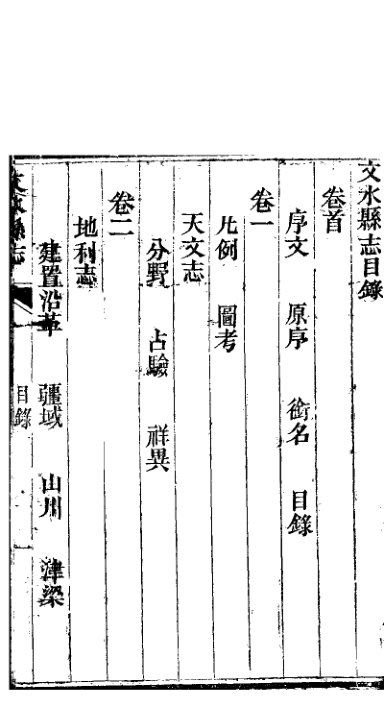 文水縣志目錄
卷首
序文 原序 銜名 目錄
卷一
凡例 圖考
天文志
分野 占驗 祥異
卷二
地利志
建置沿革 疆域 山川 津梁
文水縣志 目錄 一